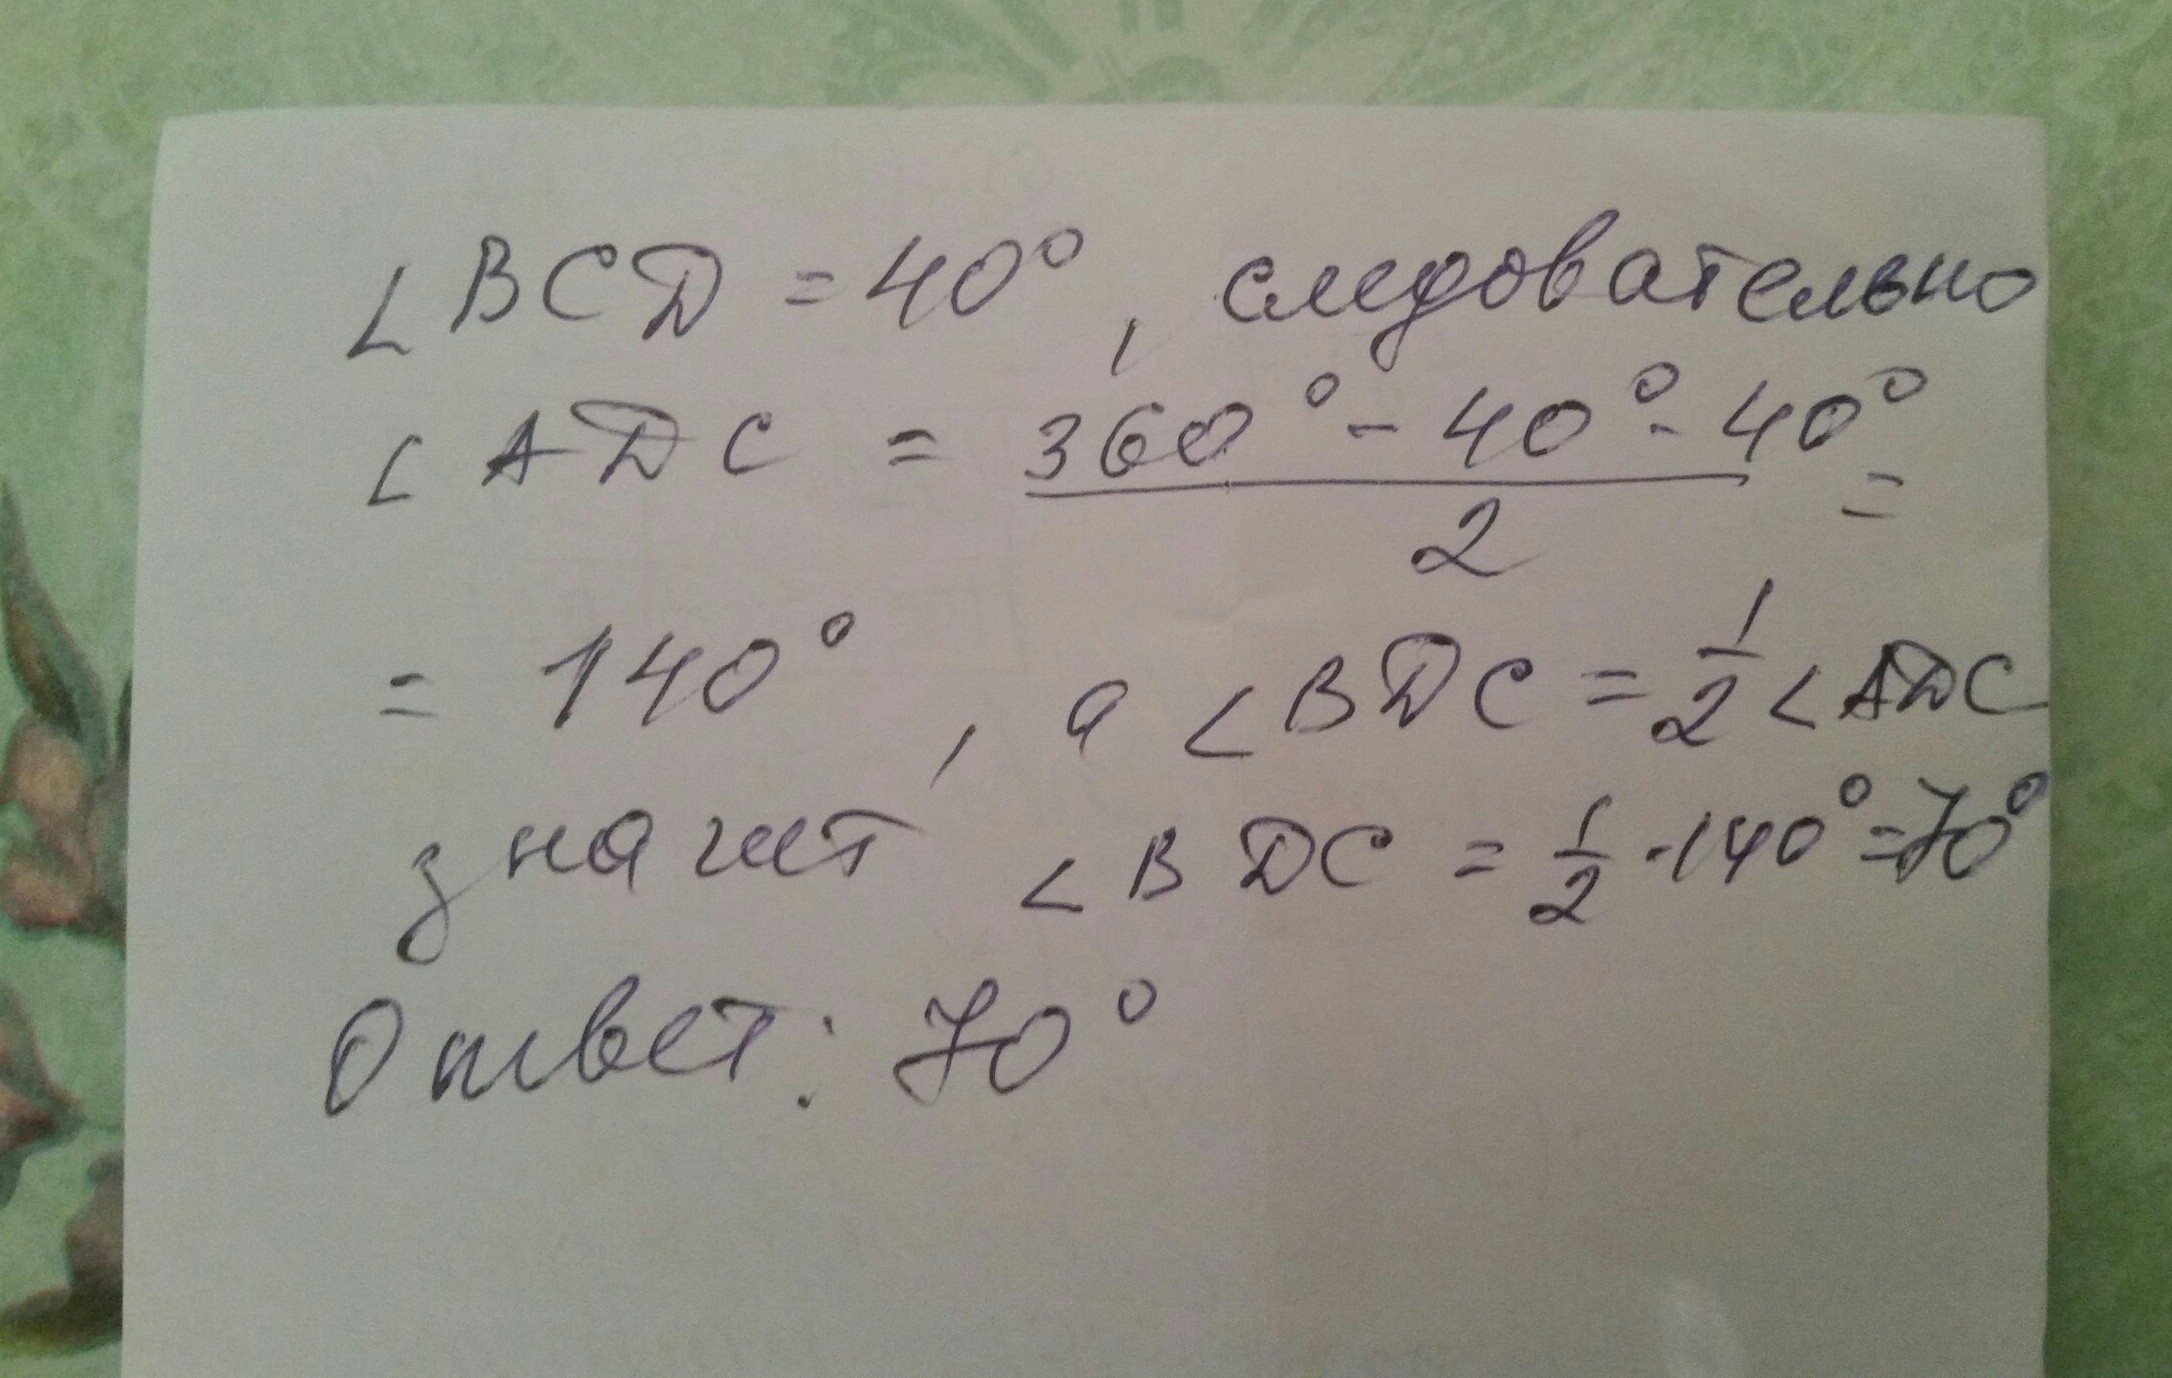 ∠BCD = 40°, следовательно
∠ADC = (360° - 40° - 40°)/2 =
= 140°, а ∠BDC = 1/2 ∠ADC
значит ∠BDC = 1/2 · 140° = 70°
Ответ: 70°